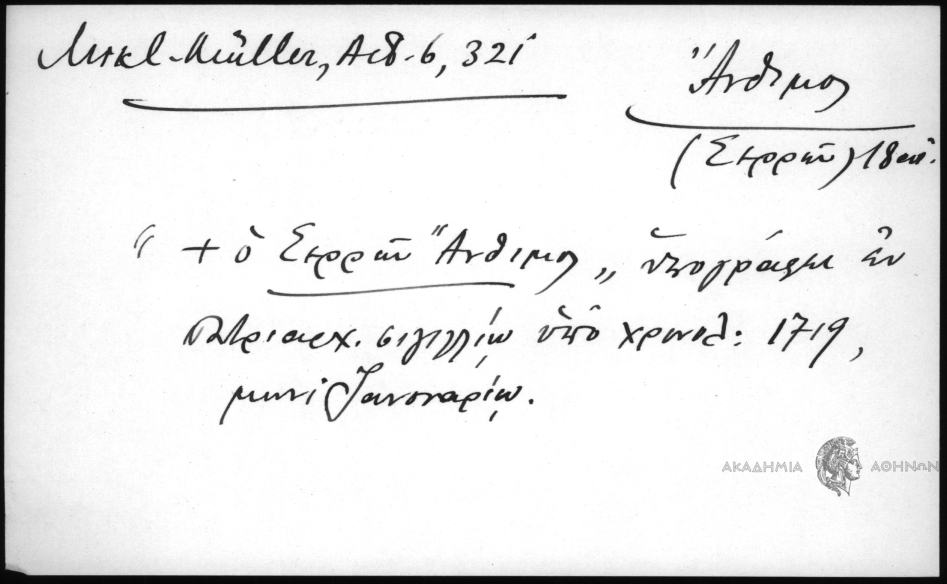 Mikl-Müller, Acta-6, 321
Ἄνθιμος
(Σερρῶν) 18 αἰ.
" + ὁ Σερρῶν Ἄνθιμος " ὑπογράφει ἐν
Πατριαρχ. σιγιλλίῳ ὑπὸ χρονολ: 1719,
μηνὶ Ἰανουαρίῳ.
ΑΚΑΔΗΜΙΑ ΑΘΗΝΩΝ